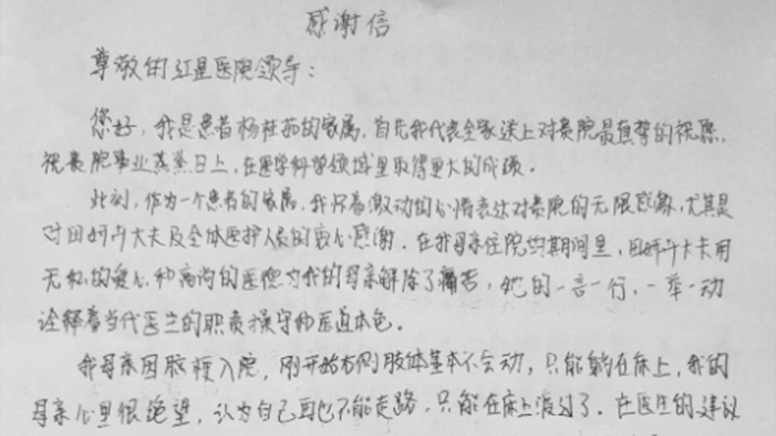 感谢信
尊敬的红星医院领导：
您好，我是患者杨桂茹的家属，首先我代表全家送上对贵院最真挚的祝愿，
祝贵院事业蒸蒸日上，在医学科学领域里取得更大的成绩。
此刻，作为一个患者的家属，我怀着激动的心情表达对贵院的无限感激，尤其是
对田妍斗大夫及全体医护人员的衷心感谢．在我母亲住院的期间里，田妍斗大夫用
无私的爱心和高尚的医德为我的母亲解除了痛苦，她的一言一行，一举一动
诠释着当代医生的职责操守和医道本色。
我母亲因脑梗入院，刚开始右侧肢体基本不会动，只能躺在床上，我的
母亲心里很绝望，认为自己再也不能走路，只能在床上渡过了．在医生的建议